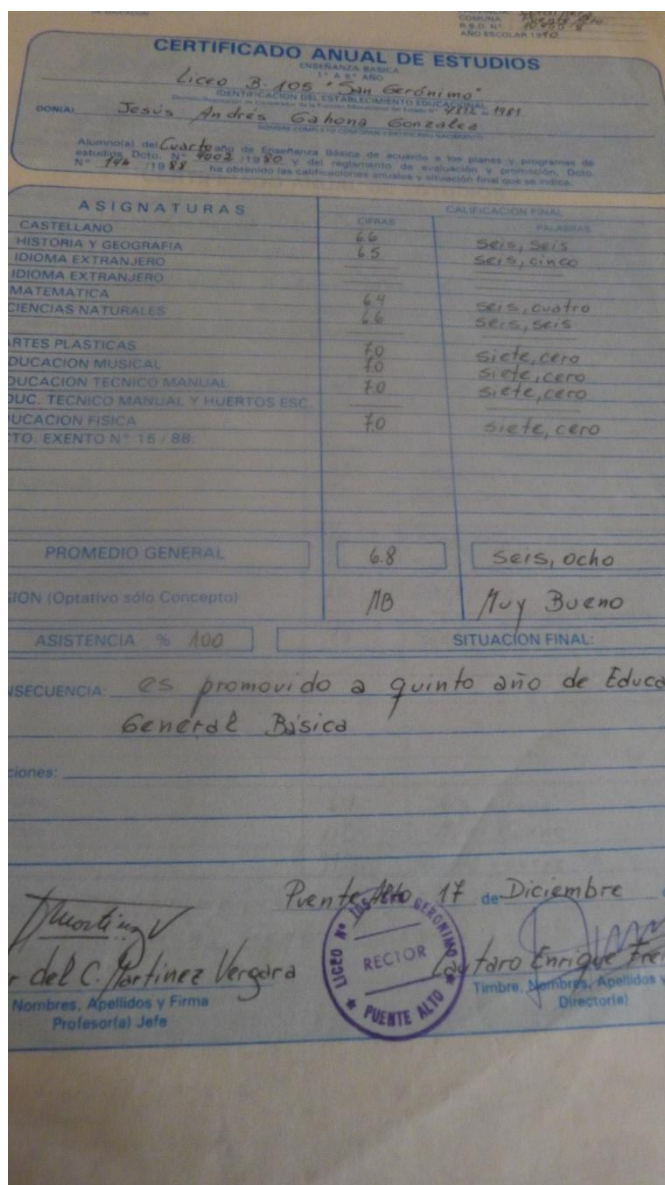 DE EDUCACION
COMUNA : Puente Alto
R.B.D. N° :
AÑO ESCOLAR 1990
CERTIFICADO ANUAL DE ESTUDIOS
ENSEÑANZA BASICA
1° A 8° AÑO
Liceo B-105 "San Gerónimo"
IDENTIFICACION DEL ESTABLECIMIENTO EDUCACIONAL
de 1981
DON(A) Jesús Andrés Gahona Gonzalez
Alumno(a) del Cuarto año de Enseñanza Básica de acuerdo a los planes y programas de
estudios, Dcto. N° 4002 /1980 y del reglamento de evaluación y promoción, Dcto.
N° 146 /1988 ha obtenido las calificaciones anuales y situación final que se indica.
ASIGNATURAS CALIFICACION FINAL
CIFRAS PALABRAS
CASTELLANO 6.6 seis, seis
HISTORIA Y GEOGRAFIA 6.5 seis, cinco
IDIOMA EXTRANJERO
IDIOMA EXTRANJERO
MATEMATICA 6.4 seis, cuatro
CIENCIAS NATURALES 6.6 seis, seis
RTES PLASTICAS 7.0 siete, cero
DUCACION MUSICAL 7.0 siete, cero
DUCACION TECNICO MANUAL 7.0 siete, cero
DUC. TECNICO MANUAL Y HUERTOS ESC.
UCACION FISICA 7.0 siete, cero
CTO. EXENTO N° 15 / 88:
PROMEDIO GENERAL 6.8 seis, ocho
ION (Optativo sólo Concepto) MB Muy Bueno
ASISTENCIA % 100 SITUACION FINAL:
NSECUENCIA: es promovido a quinto año de Educa
General Básica
ciones:
Puente Alto 17 de Diciembre
LICEO N° 105 SAN GERONIMO
RECTOR
PUENTE ALTO
r del C. Martinez Vergara
Lautaro Enrique Frei
Nombres, Apellidos y Firma
Profesor(a) Jefe
Timbre, Nombres, Apellidos y
Director(a)